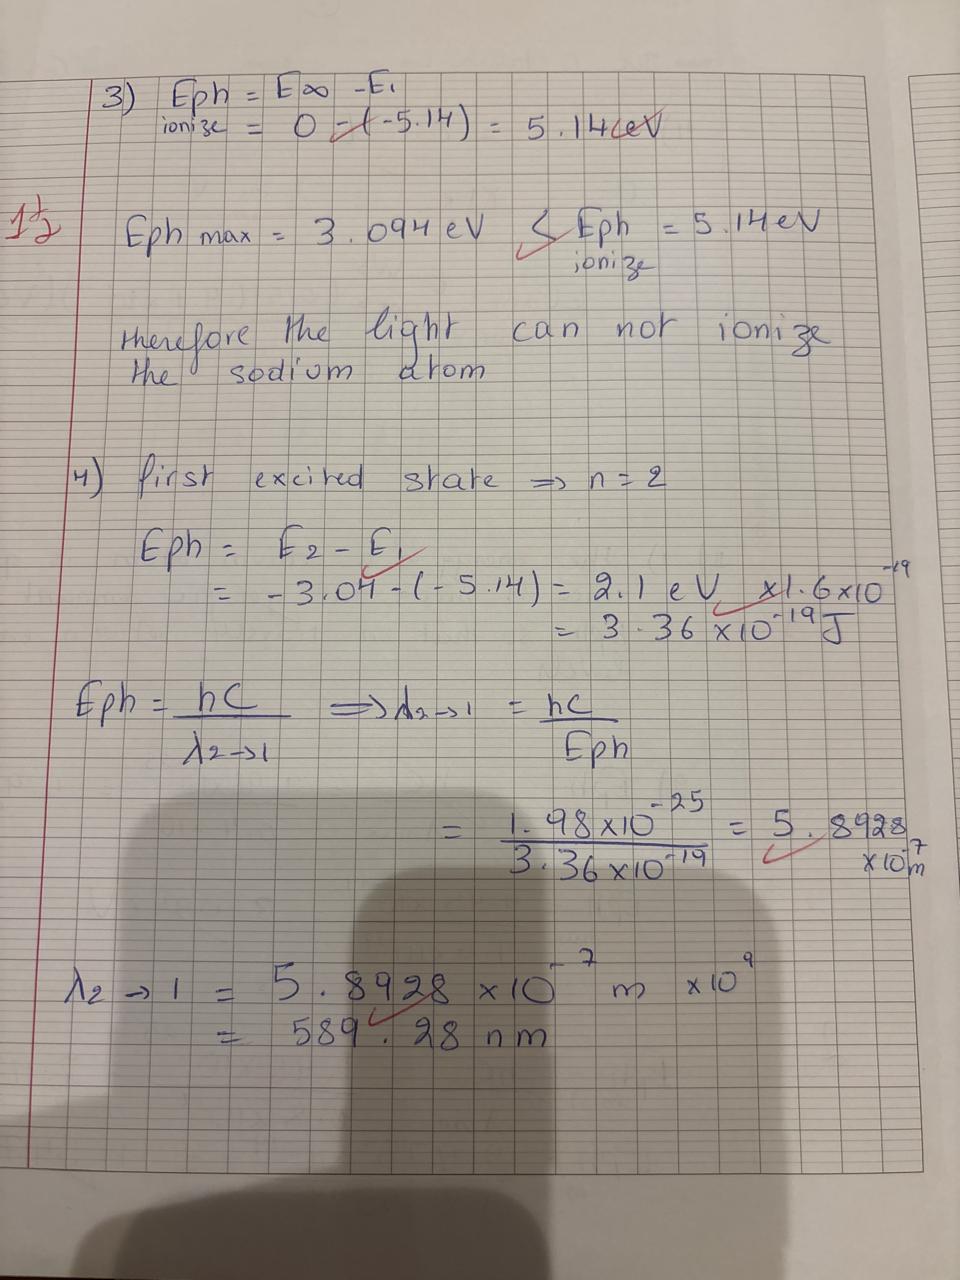 3) Eph = E∞ -E1
ionize = 0 -(-5.14) = 5.14 eV
1½
Eph max = 3.094 eV < Eph = 5.14 eV
ionize
therefore the light can not ionize
the sodium atom
4) first excited state => n = 2
Eph = E2 - E1
= -3.04 -(-5.14) = 2.1 eV ×1.6×10^-19
= 3.36 ×10^-19 J
Eph = hC/λ2→1 => λ2→1 = hC/Eph
= 1.98×10^-25/3.36×10^-19 = 5.8928
×10^-7 m
λ2→1 = 5.8928 ×10^-7 m ×10^9
= 589.28 nm